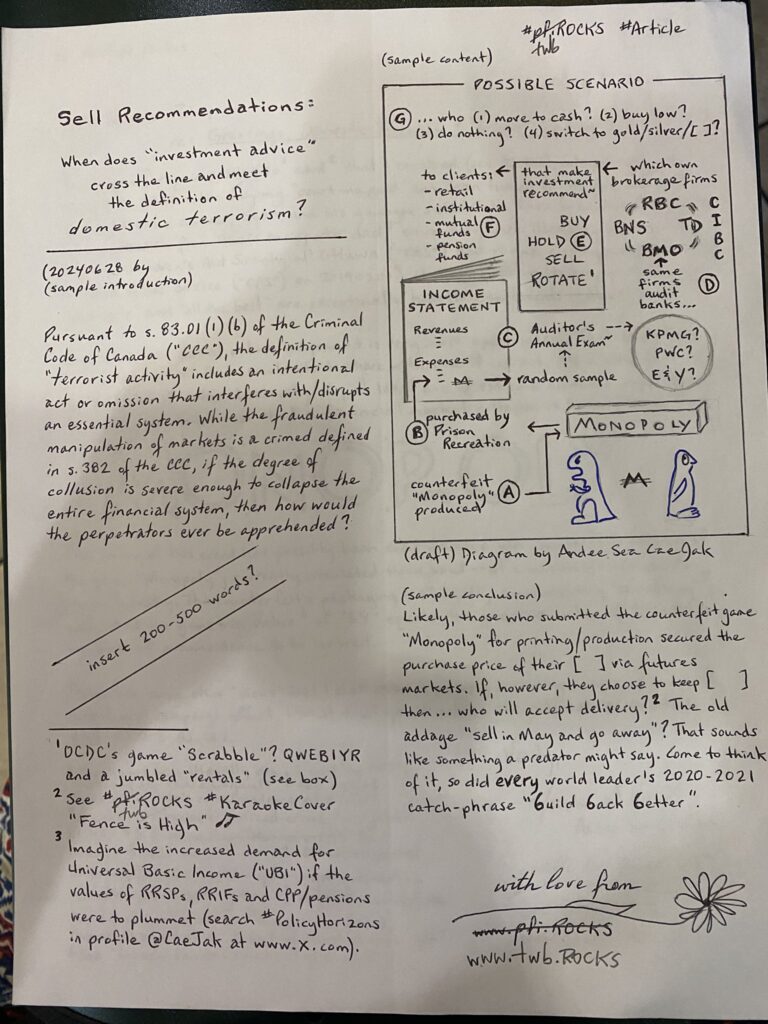 #pfi.ROCKS #Article
twb
Sell Recommendations:
When does "investment advice"
cross the line and meet
the definition of
domestic terrorism?
(20240628 by
(sample introduction)
Pursuant to s. 83.01(1)(b) of the Criminal
Code of Canada ("CCC"), the definition of
"terrorist activity" includes an intentional
act or omission that interferes with/disrupts
an essential system. While the fraudulent
manipulation of markets is a crimed defined
in s. 382 of the CCC, if the degree of
collusion is severe enough to collapse the
entire financial system, then how would
the perpetrators ever be apprehended?
insert 200-500 words?
1 OCDC's game "Scrabble"? QWEB1YR
and a jumbled "rentals" (see box)
2 See #pfi.ROCKS #KaraokeCover
twb
"Fence is High"
3 Imagine the increased demand for
Universal Basic Income ("UBI") if the
values of RRSPs, RRIFs and CPP/pensions
were to plummet (search #PolicyHorizons
in profile @CaeJak at www.X.com).
(sample content)
POSSIBLE SCENARIO
G ... who (1) move to cash? (2) buy low?
(3) do nothing? (4) switch to gold/silver/[ ]?
to clients:
- retail
- institutional
- mutual funds F
- pension funds
that make
investment
recommend~
BUY
HOLD E
SELL
ROTATE'
which own
brokerage firms
RBC
BNS TD
BMO
CIBC
same
firms
audit
banks... D
INCOME
STATEMENT
Revenues
Expenses
M
random sample
C Auditor's
Annual Exam~
KPMG?
PWC?
E&Y?
B purchased by
Prison
Recreation
MONOPOLY
counterfeit
"Monopoly" A
produced
M
(draft) Diagram by Andee Sea CaeJak
(sample conclusion)
Likely, those who submitted the counterfeit game
"Monopoly" for printing/production secured the
purchase price of their [ ] via futures
markets. If, however, they choose to keep [ ]
then... who will accept delivery?2 The old
addage "sell in May and go away"? That sounds
like something a predator might say. Come to think
of it, so did every world leader's 2020-2021
catch-phrase "6uild 6ack 6etter".
with love from
www.pfi.ROCKS
www.twb.ROCKS